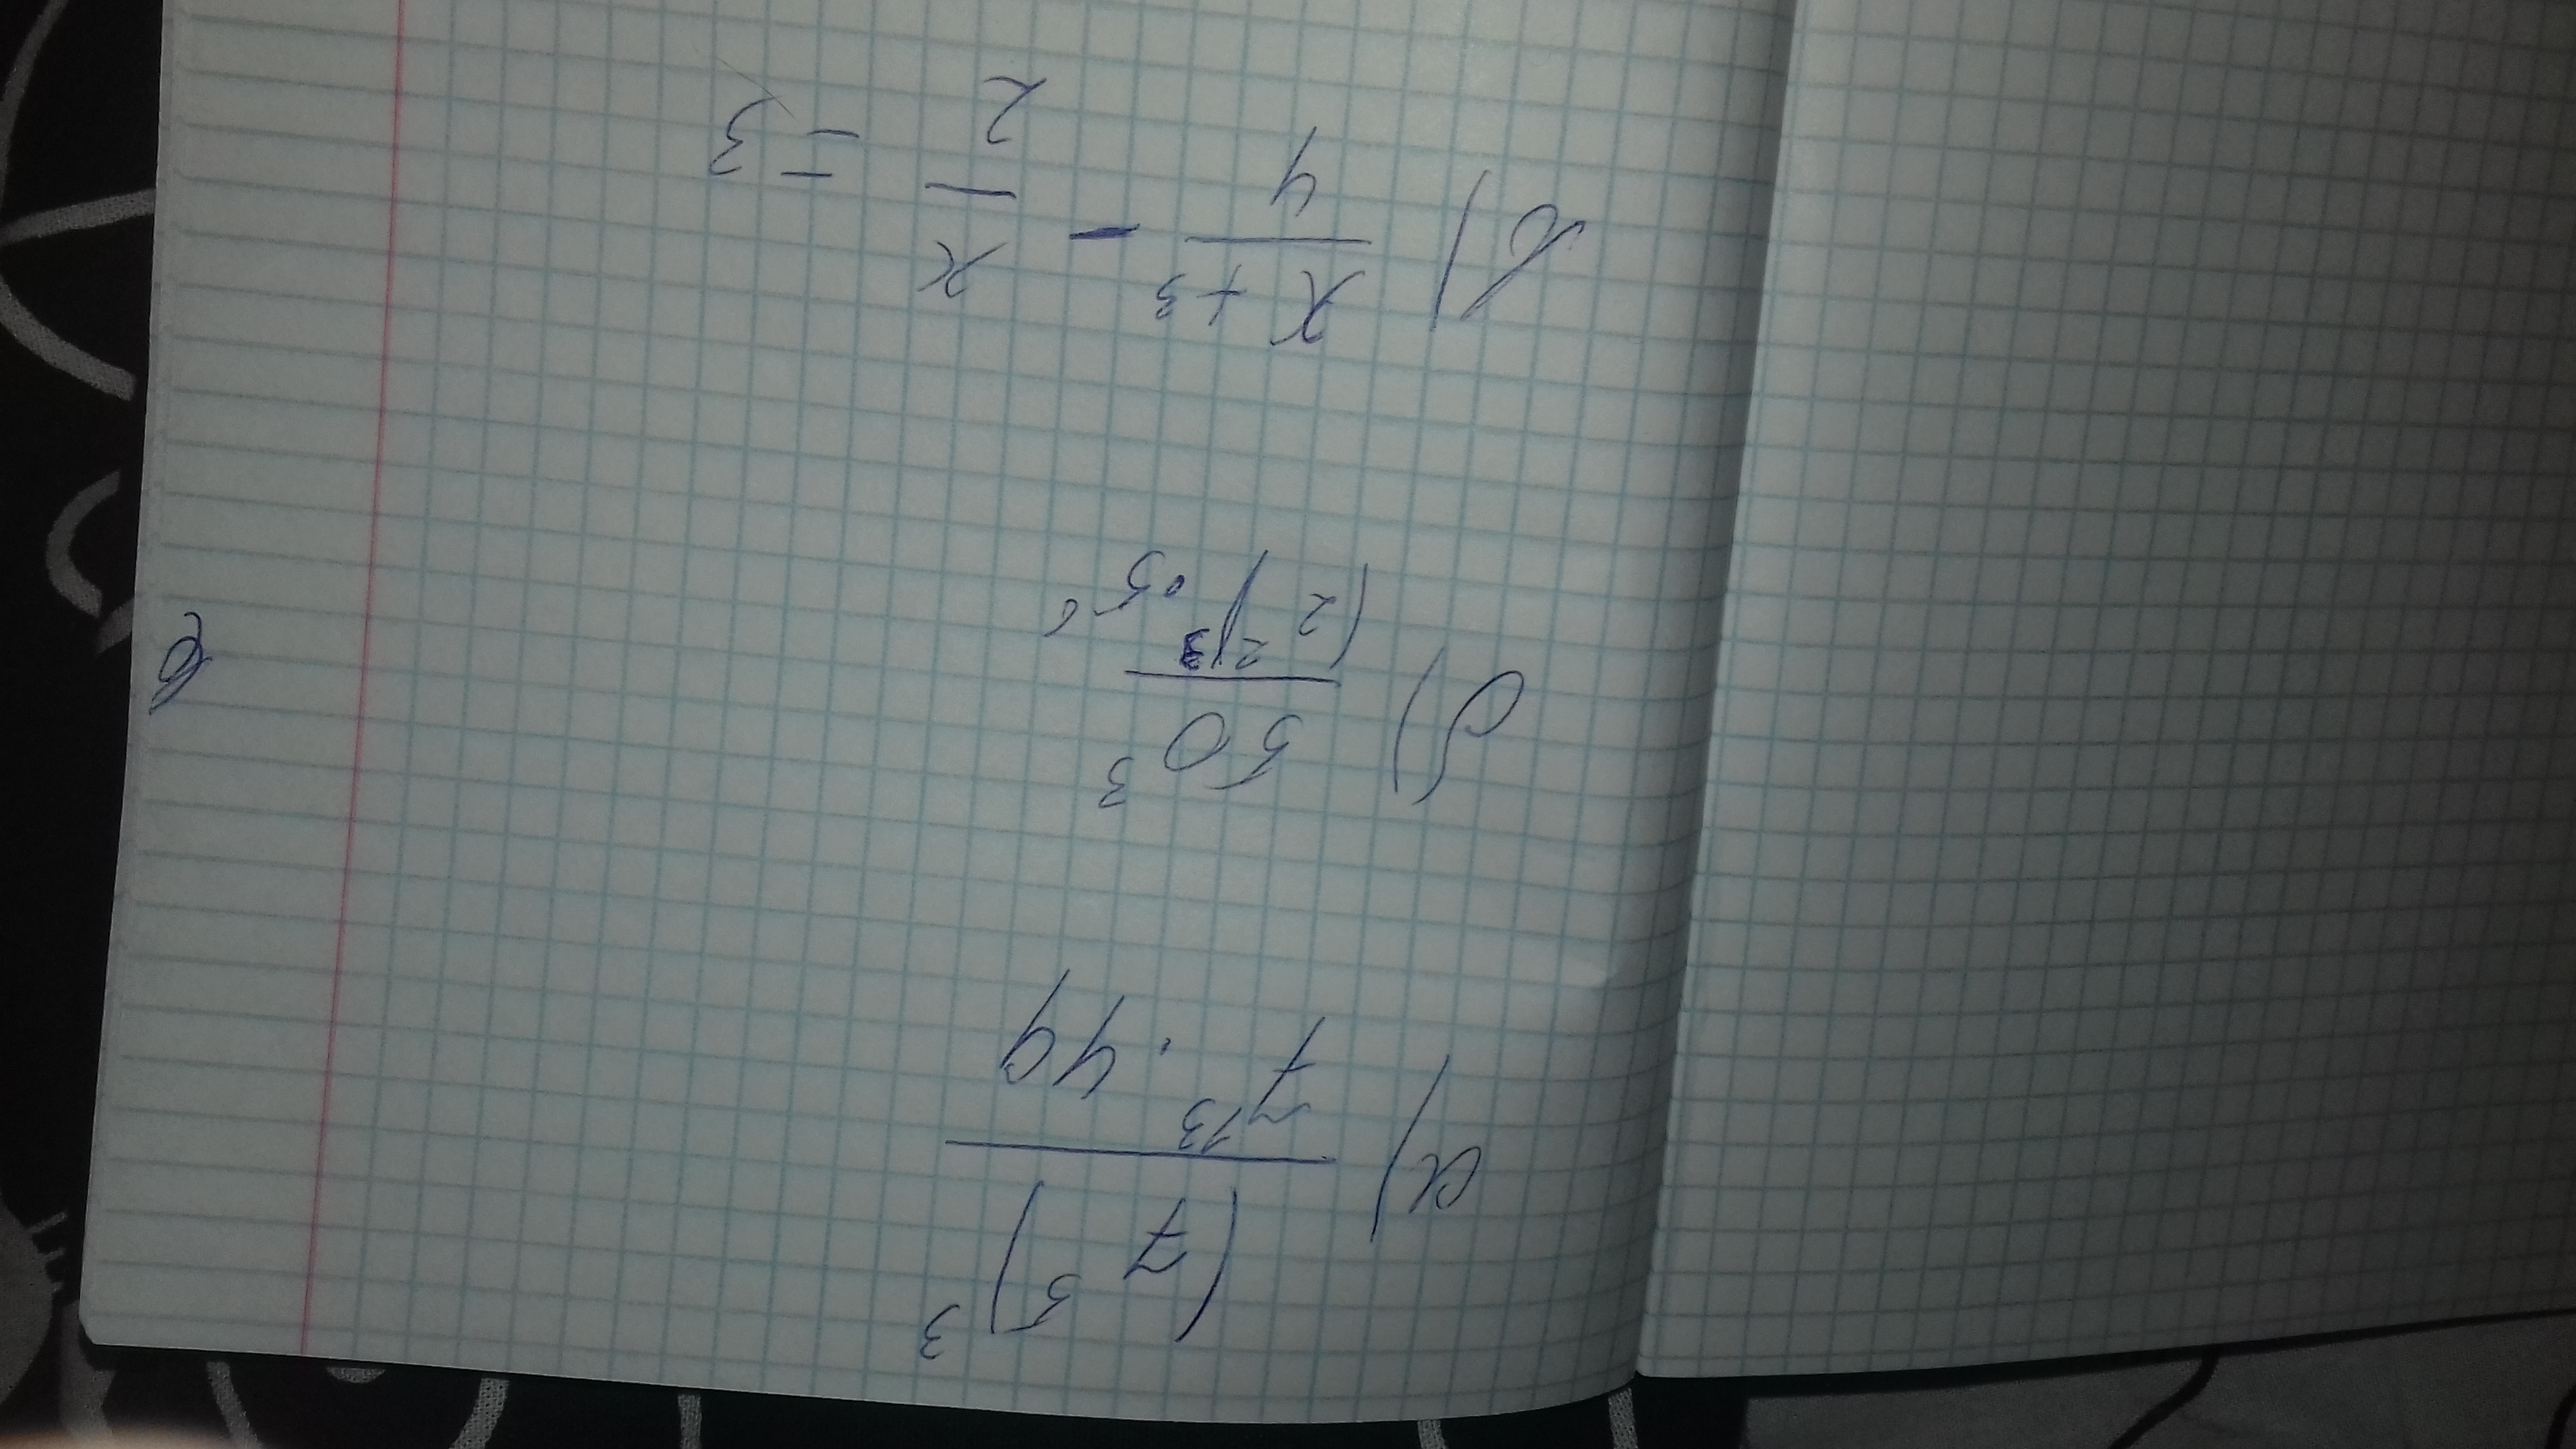 а) (7⁵)³ / 7¹³ · 49
б) 50³ / (2²)³ · 5⁶
х) x+3 / 4 - x / 2 = 3